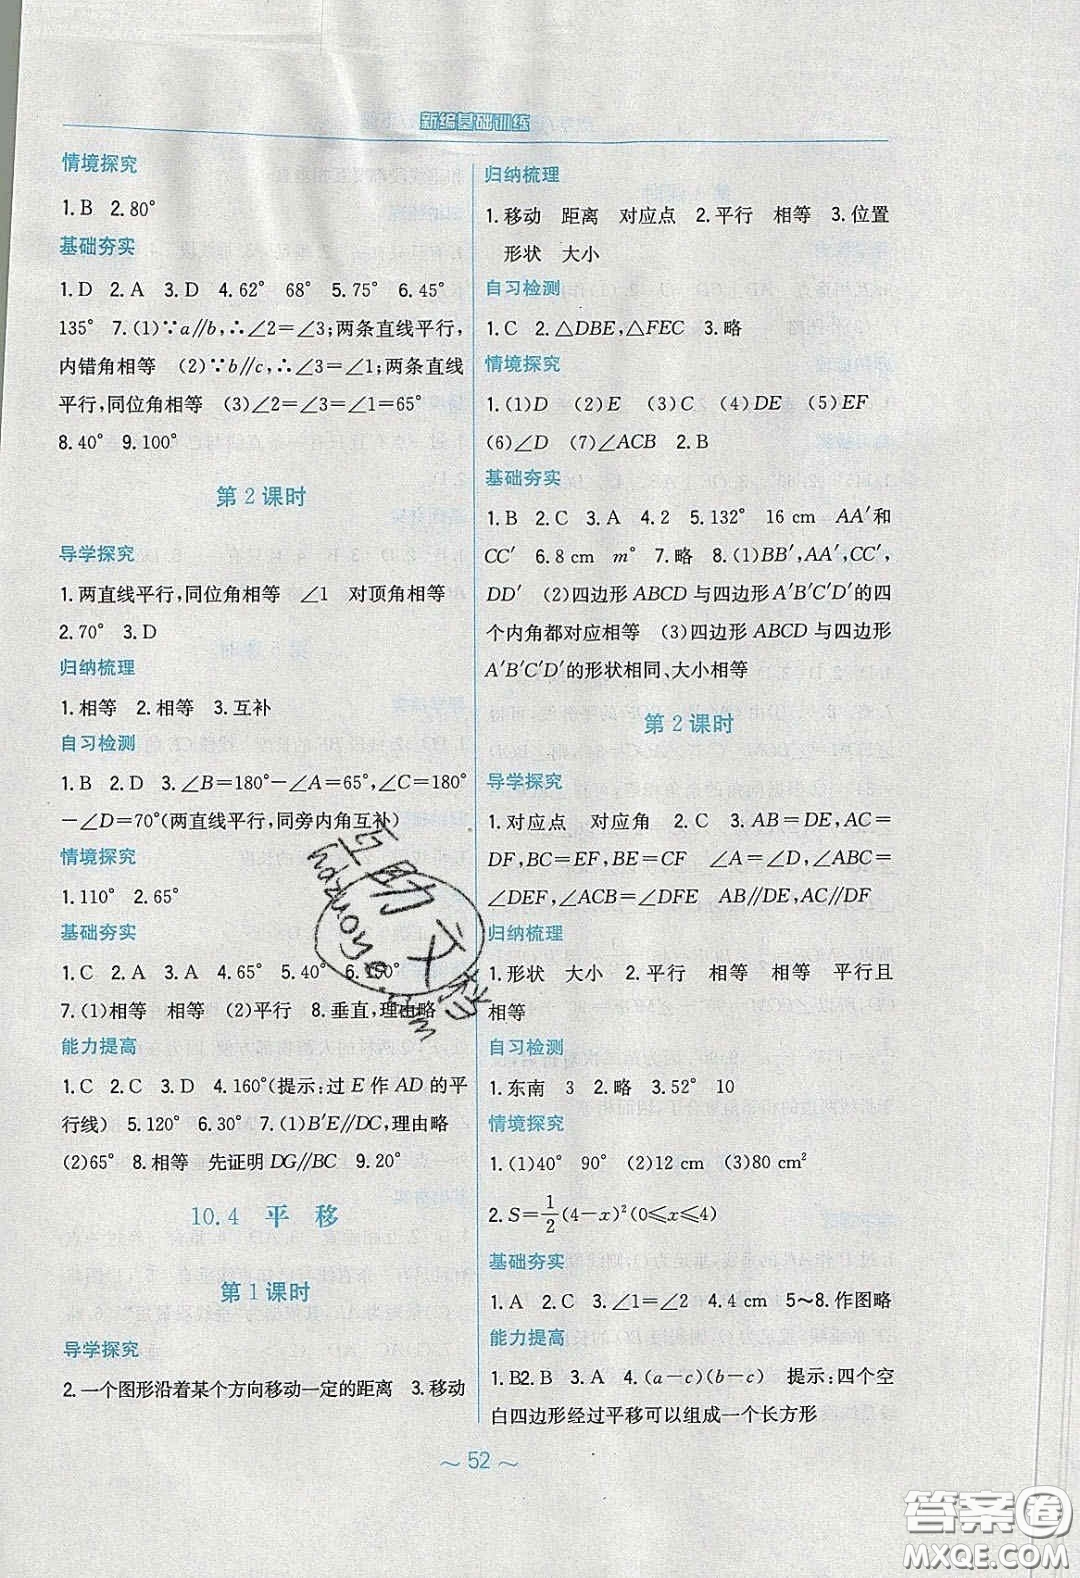 新编基础训练
情境探究
1.B 2.80°
基础夯实
1.D 2.A 3.D 4.62° 68° 5.75° 6.45°
135° 7.(1)∵a∥b,∴∠2=∠3;两条直线平行,
内错角相等 (2)∵b∥c,∴∠3=∠1;两条直线
平行,同位角相等 (3)∠2=∠3=∠1=65°
8.40° 9.100°
第2课时
导学探究
1.两直线平行,同位角相等 ∠1 对顶角相等
2.70° 3.D
归纳梳理
1.相等 2.相等 3.互补
自习检测
1.B 2.D 3.∠B=180°-∠A=65°,∠C=180°
-∠D=70°(两直线平行,同旁内角互补)
情境探究
1.110° 2.65°
基础夯实
1.C 2.A 3.A 4.65° 5.40° 6.150°
7.(1)相等 相等 (2)平行 8.垂直,理由略
能力提高
1.C 2.C 3.D 4.160°(提示:过E作AD的平
行线) 5.120° 6.30° 7.(1)B′E∥DC,理由略
(2)65° 8.相等 先证明DG∥BC 9.20°
10.4 平 移
第1课时
导学探究
2.一个图形沿着某个方向移动一定的距离 3.移动
归纳梳理
1.移动 距离 对应点 2.平行 相等 3.位置
形状 大小
自习检测
1.C 2.△DBE,△FEC 3.略
情境探究
1.(1)D (2)E (3)C (4)DE (5)EF
(6)∠D (7)∠ACB 2.B
基础夯实
1.B 2.C 3.A 4.2 5.132° 16 cm AA′和
CC′ 6.8 cm m° 7.略 8.(1)BB′,AA′,CC′,
DD′ (2)四边形ABCD与四边形A′B′C′D′的四
个内角都对应相等 (3)四边形ABCD与四边形
A′B′C′D′的形状相同、大小相等
第2课时
导学探究
1.对应点 对应角 2.C 3.AB=DE,AC=
DF,BC=EF,BE=CF ∠A=∠D,∠ABC=
∠DEF,∠ACB=∠DFE AB∥DE,AC∥DF
归纳梳理
1.形状 大小 2.平行 相等 相等 平行且
相等
自习检测
1.东南 3 2.略 3.52° 10
情境探究
1.(1)40° 90° (2)12 cm (3)80 cm²
2.S=1/2(4-x)²(0⩽x⩽4)
基础夯实
1.A 2.C 3.∠1=∠2 4.4 cm 5~8.作图略
能力提高
1.B2.B 3.A 4.(a-c)(b-c) 提示:四个空
白四边形经过平移可以组成一个长方形
~ 52 ~
互助文档
hdzuoye.com
答案圈
MXQE.COM